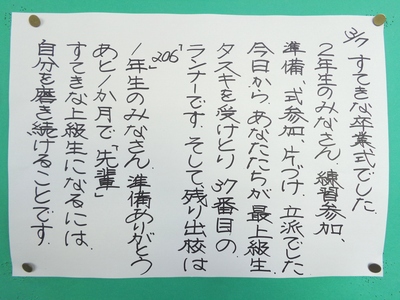 3/7 すてきな卒業式でした
2年生のみなさん、練習参加、
準備、式参加、片づけ、立派でした
今日から、あなたたちが最上級生
タスキを受けとり、37番目の
ランナーです。そして、残り出校は
「206」
1年生のみなさん、準備ありがとう
あと1か月で「先輩」
すてきな上級生になるには、
自分を磨き続けることです。